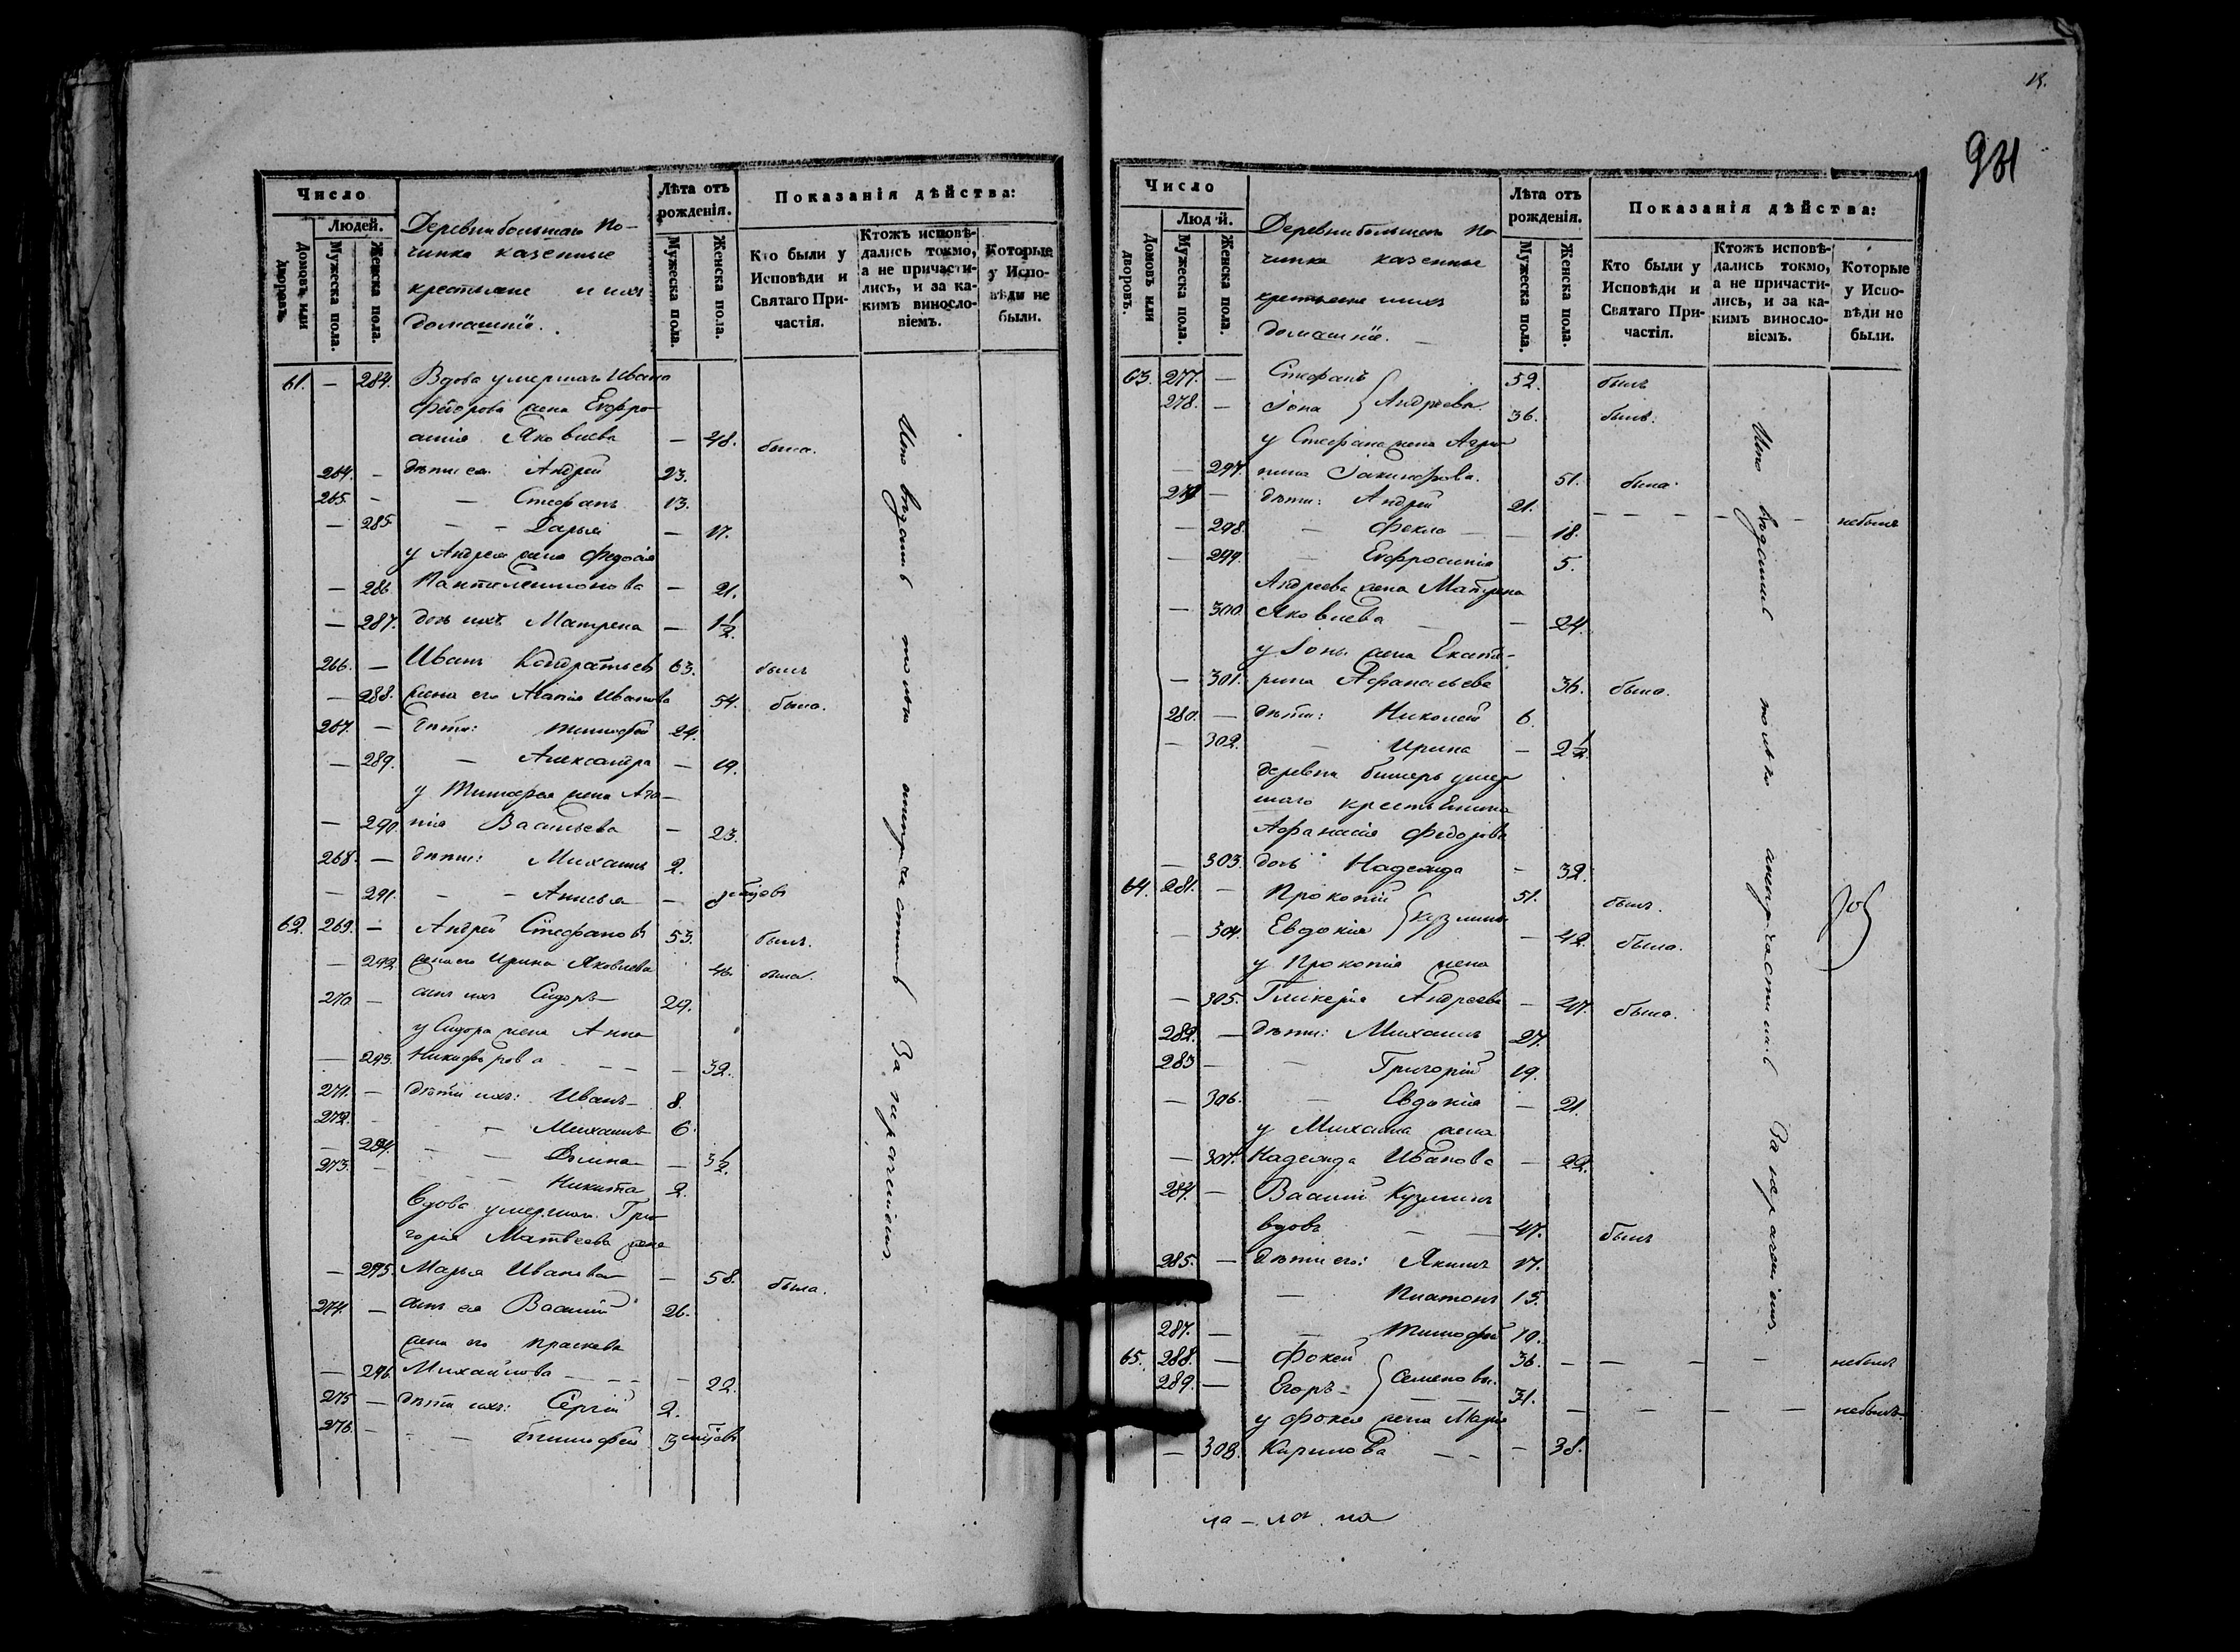 Число
Людей.
Домовъ или дворовъ.
Мужеска пола.
Женска пола.
Деревни большаго По-
чинка казенные
крестьяне и ихъ
домашніе.
Лѣта отъ рожденія.
Мужеска пола.
Женска пола.
Показанія дѣйства:
Кто были у Исповѣди и Святаго При-частія.
Ктожъ исповѣ-дались токмо, а не причасти-лись, и за ка-кимъ винословіемъ.
Которые у Испо-вѣди не были.
61. — 284. Вдова умершаго Ивана
Фёдорова жена Евфро-
синія Яковлева — 48. была.
264. — дѣти ея: Андрей 23.
265. — — Стефанъ 13.
— 285. — — Дарья — 17.
у Андрея жена Федосія
— 286. Пантелеимонова — 21.
— 287. дочь ихъ Матрена — 1½.
266. — Иванъ Кондратьевъ 63. былъ
— 288. жена его Агапія Иванова 54. была.
267. — дѣти: Тимофей 24.
— 289. — Александра — 19.
у Тимофея жена Ага-
— 290. пія Васильева — 23.
268. — дѣти: Михаилъ 2.
— 291. — — Анисья —
62. 269. — Андрей Стефановъ 53. былъ.
— 292. жена его Ирина Яковлева 46. была.
270. — сынъ ихъ Сидоръ — 29.
у Сидора жена Анна
— 293. Никифорова — — — 32.
271. — дѣти ихъ: Иванъ — 8.
272. — — Михаилъ 6.
— 294. — — — 3½.
273. — — — Никита 2.
Вдова умершаго Гри-
горія Матвеева жена
— 295. Марья Иванова — — 58. была.
274. — сынъ ея Василій 26.
жена его Прасковья
— 296. Михайлова — — — 22.
275 — дѣти ихъ: Сергій 2.
276. — — — Тимофей 3
за нерачениемъ
15.
931
Число
Людей.
Домовъ или дворовъ.
Мужеска пола.
Женска пола.
Деревни большаго По
чинка казенные
крестьяне и ихъ
домашніе. —
Лѣта отъ рожденія.
Мужеска пола.
Женска пола.
Показанія дѣйства:
Кто были у Исповѣди и Святаго При-частія.
Ктожъ исповѣ-дались токмо, а не причасти-лись, и за ка-кимъ винословіемъ.
Которые у Испо-вѣди не были.
63. 277. — Стефанъ 52. былъ
278. — Іона } Андреевы. 36. былъ.
у Стефана жена Агри-
— 297. пина Іакинфова. 51. была.
279 — дѣти: Андрей 21. — — — — — небылъ
— 298. — Фекла — — 18.
— 299. — Евфросинія 5.
Андреева жена Матрена
— 300. Яковлева — — 24.
у Іоны жена Екате-
— 301. рина Афанасьева 36. была.
280. — дѣти: Николай 6.
— 302. — Ирина — 2½.
деревни умер-
шаго крестьянина
Афанасія Федорова
— 303. дочь Надежда — 32.
64. 281. — Прокопій 51. былъ.
— 304. Евдокія } Кузмины — 42. была.
у Прокопія жена
— 305. Гликерія Андреева — 47. была.
282. — дѣти: Михаилъ 27.
283 — — Григорій 19.
— 306. — Евдокія — 21.
у Михаила жена
— 307. Надежда Иванова — 22.
284. — Василій Кузминъ
вдовъ — — 47. былъ
285. — дѣти его: Якимъ 17.
— Платонъ 15.
287. — — Тимофей 10.
65. 288. — Фокей 36. — — — — небылъ
289. — Егоръ } Семеновы. 31. — — — — небылъ
у Фокея жена Марія
— 308. Кирилова — — — 38.
за нерачениемъ